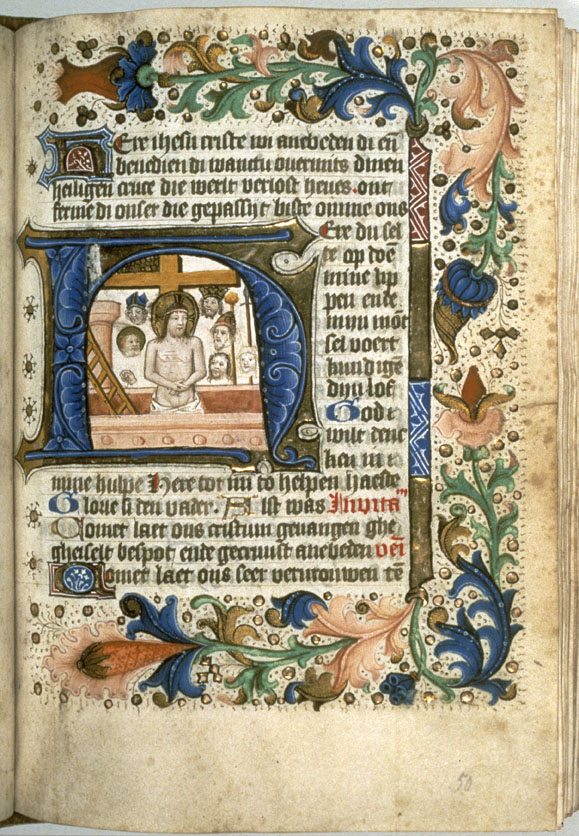 Ere ihesu criste wi anebeden di en
benedien di wantu overmits dinen
heiligen cruce die werlt verlost heves. ont
ferme di onser die gepassyt biste omme ons
Ere du sel
te op doē
mine lip
pen ende
mijn mōt
sel voert
kundigē
dijn lof
God i
wilt denc
ken in i
mine hulpe Here tot mi to helpen haeste
Glorie si den vader. Als it was Invitaᵐ
Comet laet ons cristum gevangen ghe
gheiselt bespot ende gecruust anebeden
Comet laet ons seer vervrouwen tē
50